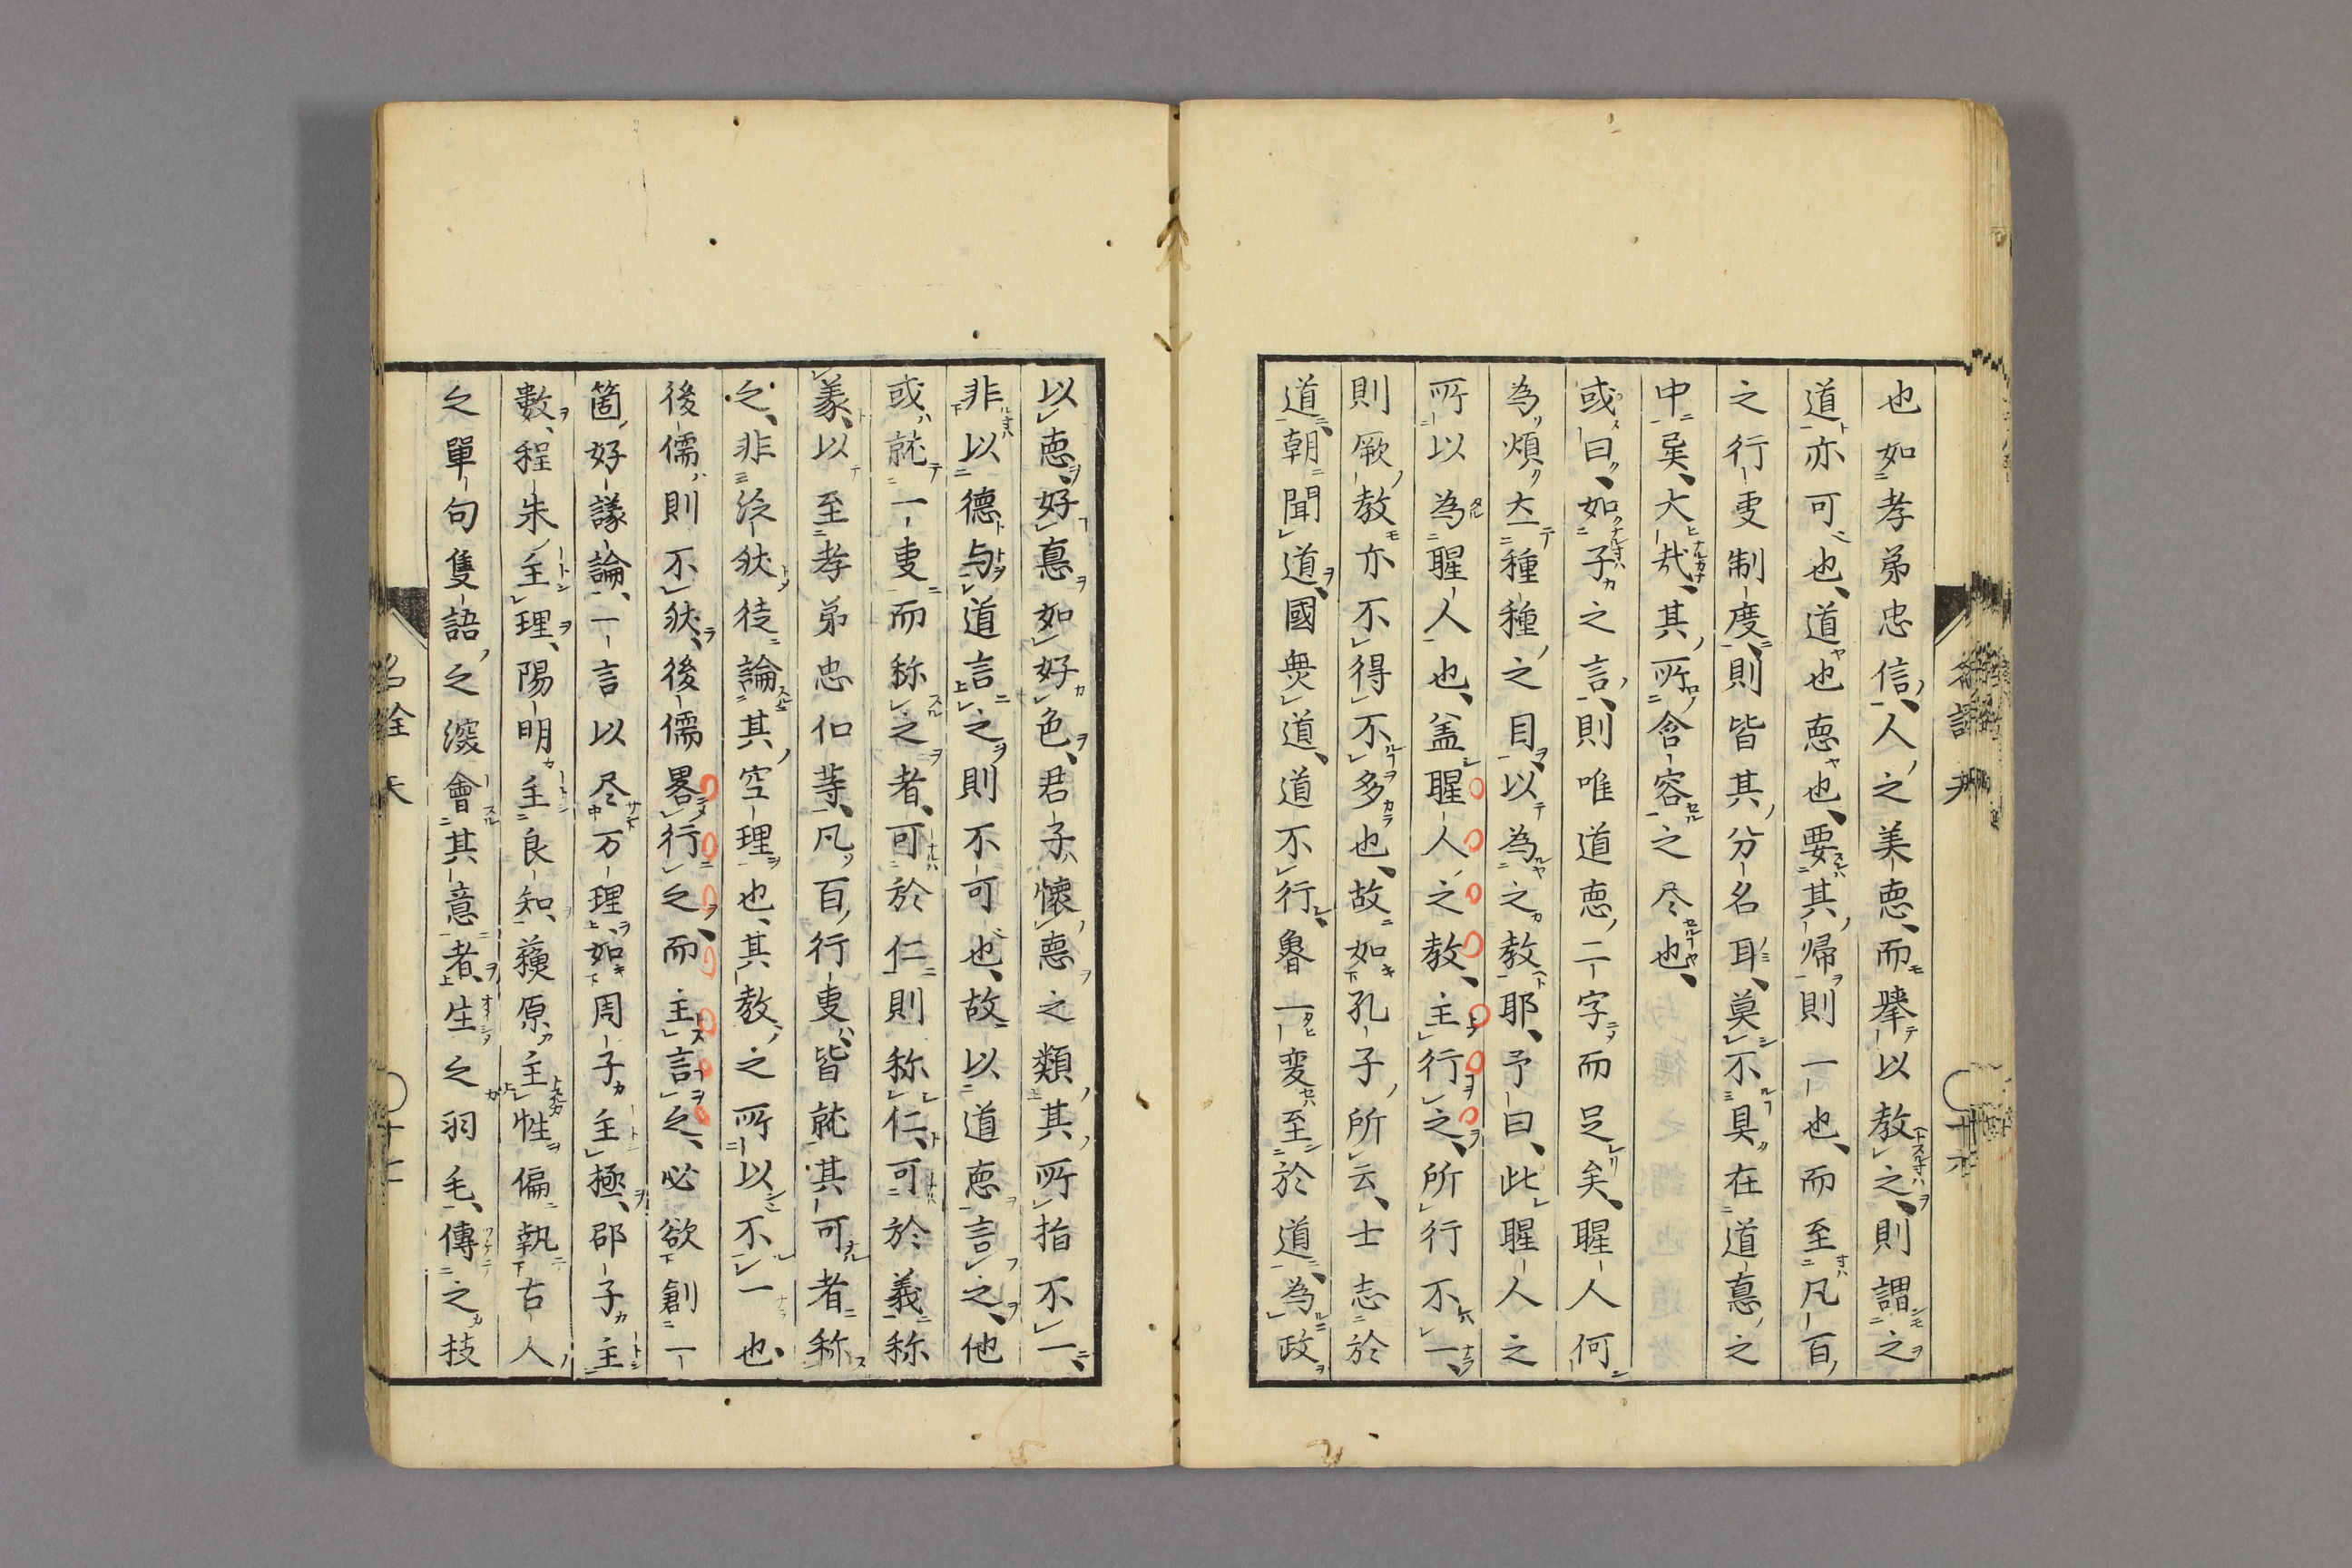 也如孝弟忠信人之美悳而擧以教之則謂之
道亦可也道也悳也要其帰則一也而至凡百
之行叓制度則皆其分名耳莫不具在道悳之
中矣大哉其所含容之尽也
或曰如子之言則唯道悳二字而足矣聖人何
為煩大種種之目以為之教耶予曰此聖人之
所以為聖人也盖聖人之教主行之所行不一
則厥教亦不得不多也故如孔子所云士志於
道朝聞道國無道道不行魯一変至於道為政
以悳好悳如好色君子懷悳之類其所指不一
非以德与道言之則不可也故以道悳言之他
或就一叓而称之者可於仁則称仁可於義称
義以至孝弟忠和等凡百行叓皆就其可者称
之非泛狀徒論其空理也其教之所以不一也
後儒則不狀後儒畧行之而主言之必欲創一
箇好議論一言以尽万理如周子主極邵子主
數程朱主理陽明主良知蘐原主性偏執古人
之單句隻語之湊會其意者生之羽毛傳之技
名詮 天